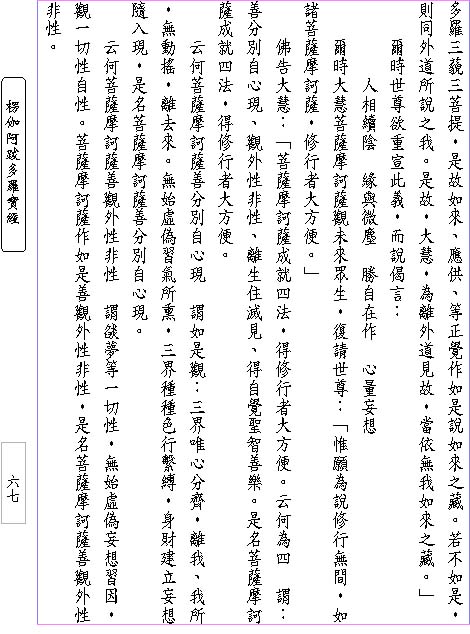 多羅三藐三菩提，是故如來、應供、等正覺作如是說如來之藏。若不如是，
則同外道所說之我。是故，大慧，為離外道見故，當依無我如來之藏。」
爾時世尊欲重宣此義，而說偈言：
人相續陰　緣與微塵　勝自在作　心量妄想
爾時大慧菩薩摩訶薩觀未來眾生，復請世尊：「惟願為說修行無間，如
諸菩薩摩訶薩，修行者大方便。」
佛告大慧：「菩薩摩訶薩成就四法，得修行者大方便。云何為四　謂：
善分別自心現、觀外性非性、離生住滅見、得自覺聖智善樂。是名菩薩摩訶
薩成就四法，得修行者大方便。
云何菩薩摩訶薩善分別自心現　謂如是觀：三界唯心分齊，離我、我所
，無動搖，離去來。無始虛偽習氣所熏，三界種種色行繫縛，身財建立妄想
隨入現，是名菩薩摩訶薩善分別自心現。
云何菩薩摩訶薩善觀外性非性　謂燄夢等一切性，無始虛偽妄想習因，
觀一切性自性。菩薩摩訶薩作如是善觀外性非性，是名菩薩摩訶薩善觀外性
非性。
楞伽阿跋多羅寶經
六七